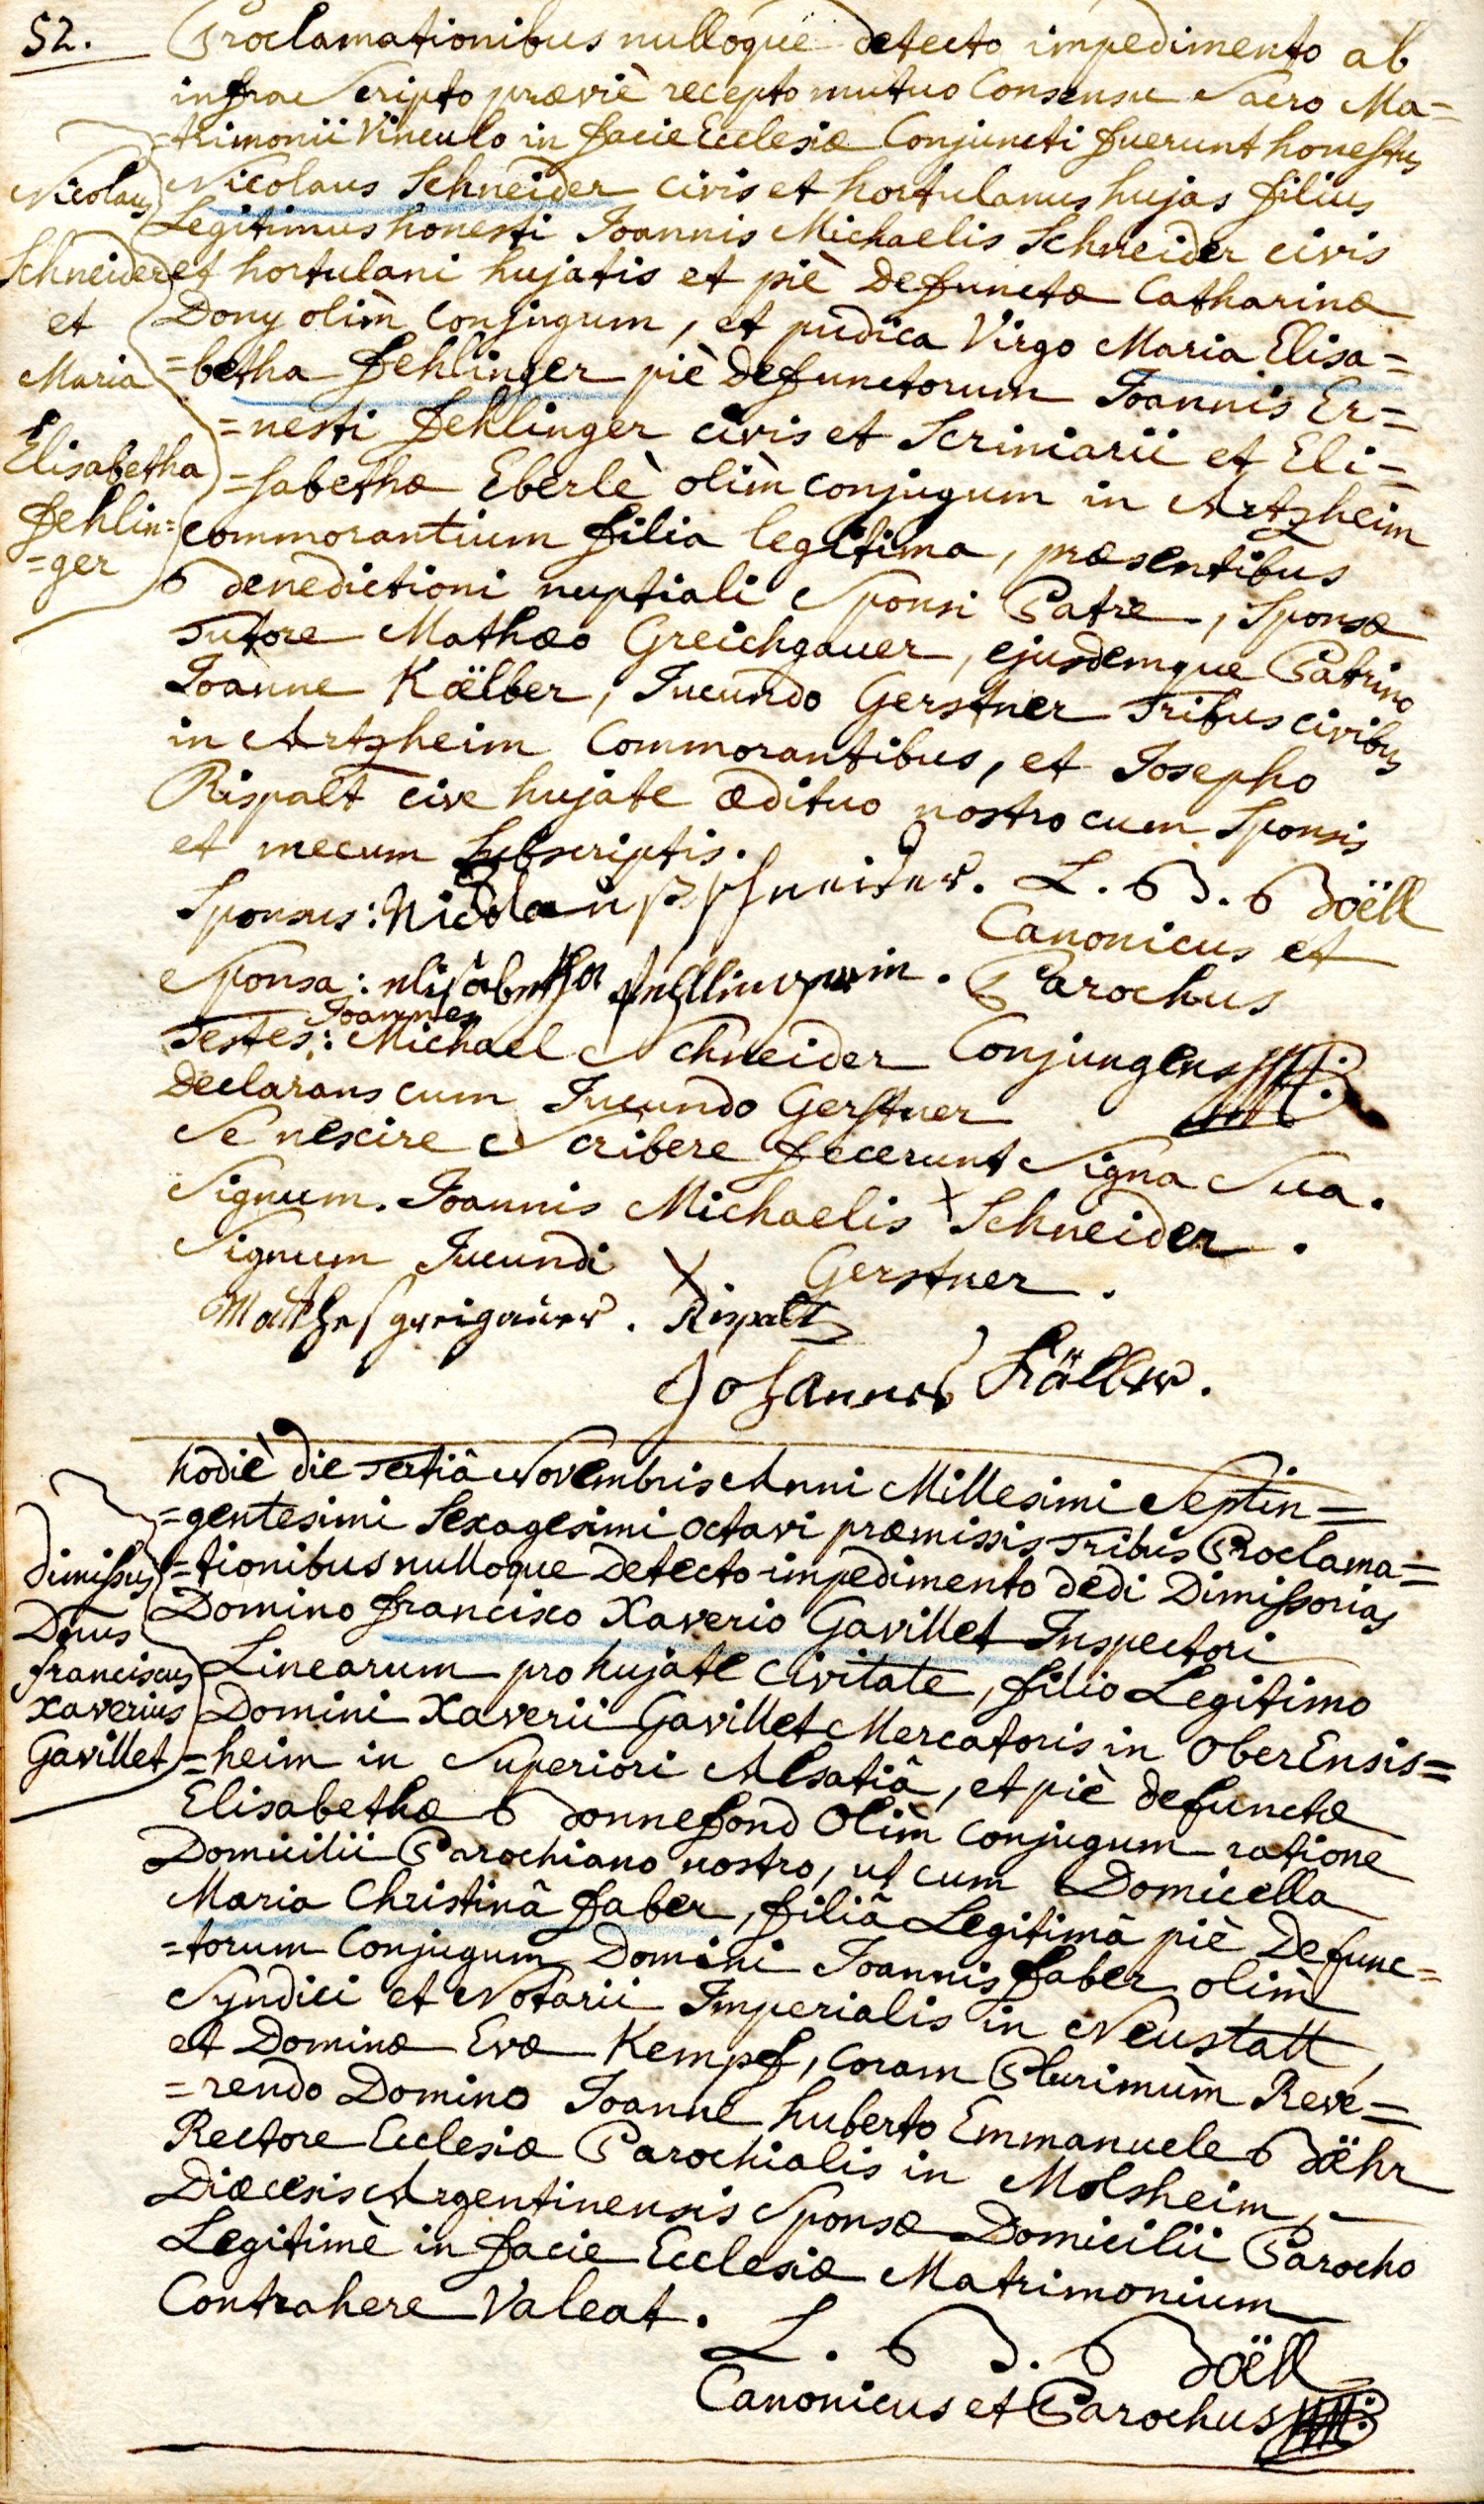 52. Proclamationibus nulloque detecto impedimento ab
infra Scripto præviè recepto mutuo Consensu Sacro Ma=
=trimonii Vinculo in facie Ecclesiæ Conjuncti fuerunt honestus
Nicolaus Schneider civis et hortulanus hujas filius
Legitimus honesti Joannis Michaelis Schneider civis
et hortulani hujatis et piè Defunctæ Catharinæ
Dony olim Conjugum, et pudica Virgo Maria Elisa=
=betha Fehlinger piè Defunctorum Joannis Er=
=nesti Fehlinger civis et Scriniarii et Eli=
=sabethæ Eberlè olìm conjugum in Artzheim
commorantium filia legitima, præsentibus
Benedictioni nuptiali Sponsi Patre, Sponsæ
Tutore Mathæo Greichgauer, ejusdemque Patrino
Joanne Kälber, Jucundo Gerstner Tribus civibus
in Artzheim Commorantibus, et Josepho
Rispalt cive hujate ædituo nostro cum Sponsis
et mecum Subscriptis.
Nicolaus
Schneider
et
Maria
Elisabetha
Fehlin=
=ger
Sponsus: Nicolaus Schneider. L. B. Böell
Canonicus et
Sponsa: elisabetha fehlingerin. Parochus
Joannes
Testes: Michael Schneider Conjungens
Declarans cum Jucundo Gerstner
Se nescire Scribere fecerunt Signa Sua.
Signum Joannis Michaelis X Schneider.
Signum Jucundi X Gerstner.
Mathes greigauer. Rispalt
Johannes Kälber.
hodiè die Tertiâ Novembris Anni Millesimi Septin=
=gentesimi Sexagesimi octavi præmissis Tribus Proclama=
=tionibus nulloque Detecto impedimento dedi Dimissorias
Domino Francisco Xaverio Gavillet Inspectori
Linearum pro hujate Civitate, filio Legitimo
Domini Xaverii Gavillet Mercatoris in OberEnsis=
=heim in Superiori Alsatiâ, et piè defunctæ
Elisabethæ Bonnefond Olim Conjugum ratione
Domicilii Parochiano nostro, ut cum Domicella
Maria Christinâ Faber, filiâ Legitimâ piè Defunc=
=torum Conjugum Domini Joannis Faber olim
Syndici et Notarii Imperialis in Neustatt,
et Dominæ Evæ Kempf, coram Plurimùm Reve=
=rendo Domino Joanne huberto Emmanuele Bähr
Rectore Ecclesiæ Parochialis in Molsheim,
Diæcesis Argentinensis Sponsæ Domicilii Parocho
Legitimè in facie Ecclesiæ Matrimonium
Contrahere Valeat.
dimissus
Dnus
franciscus
Xaverius
Gavillet
L. B. Böell
Canonicus et Parochus